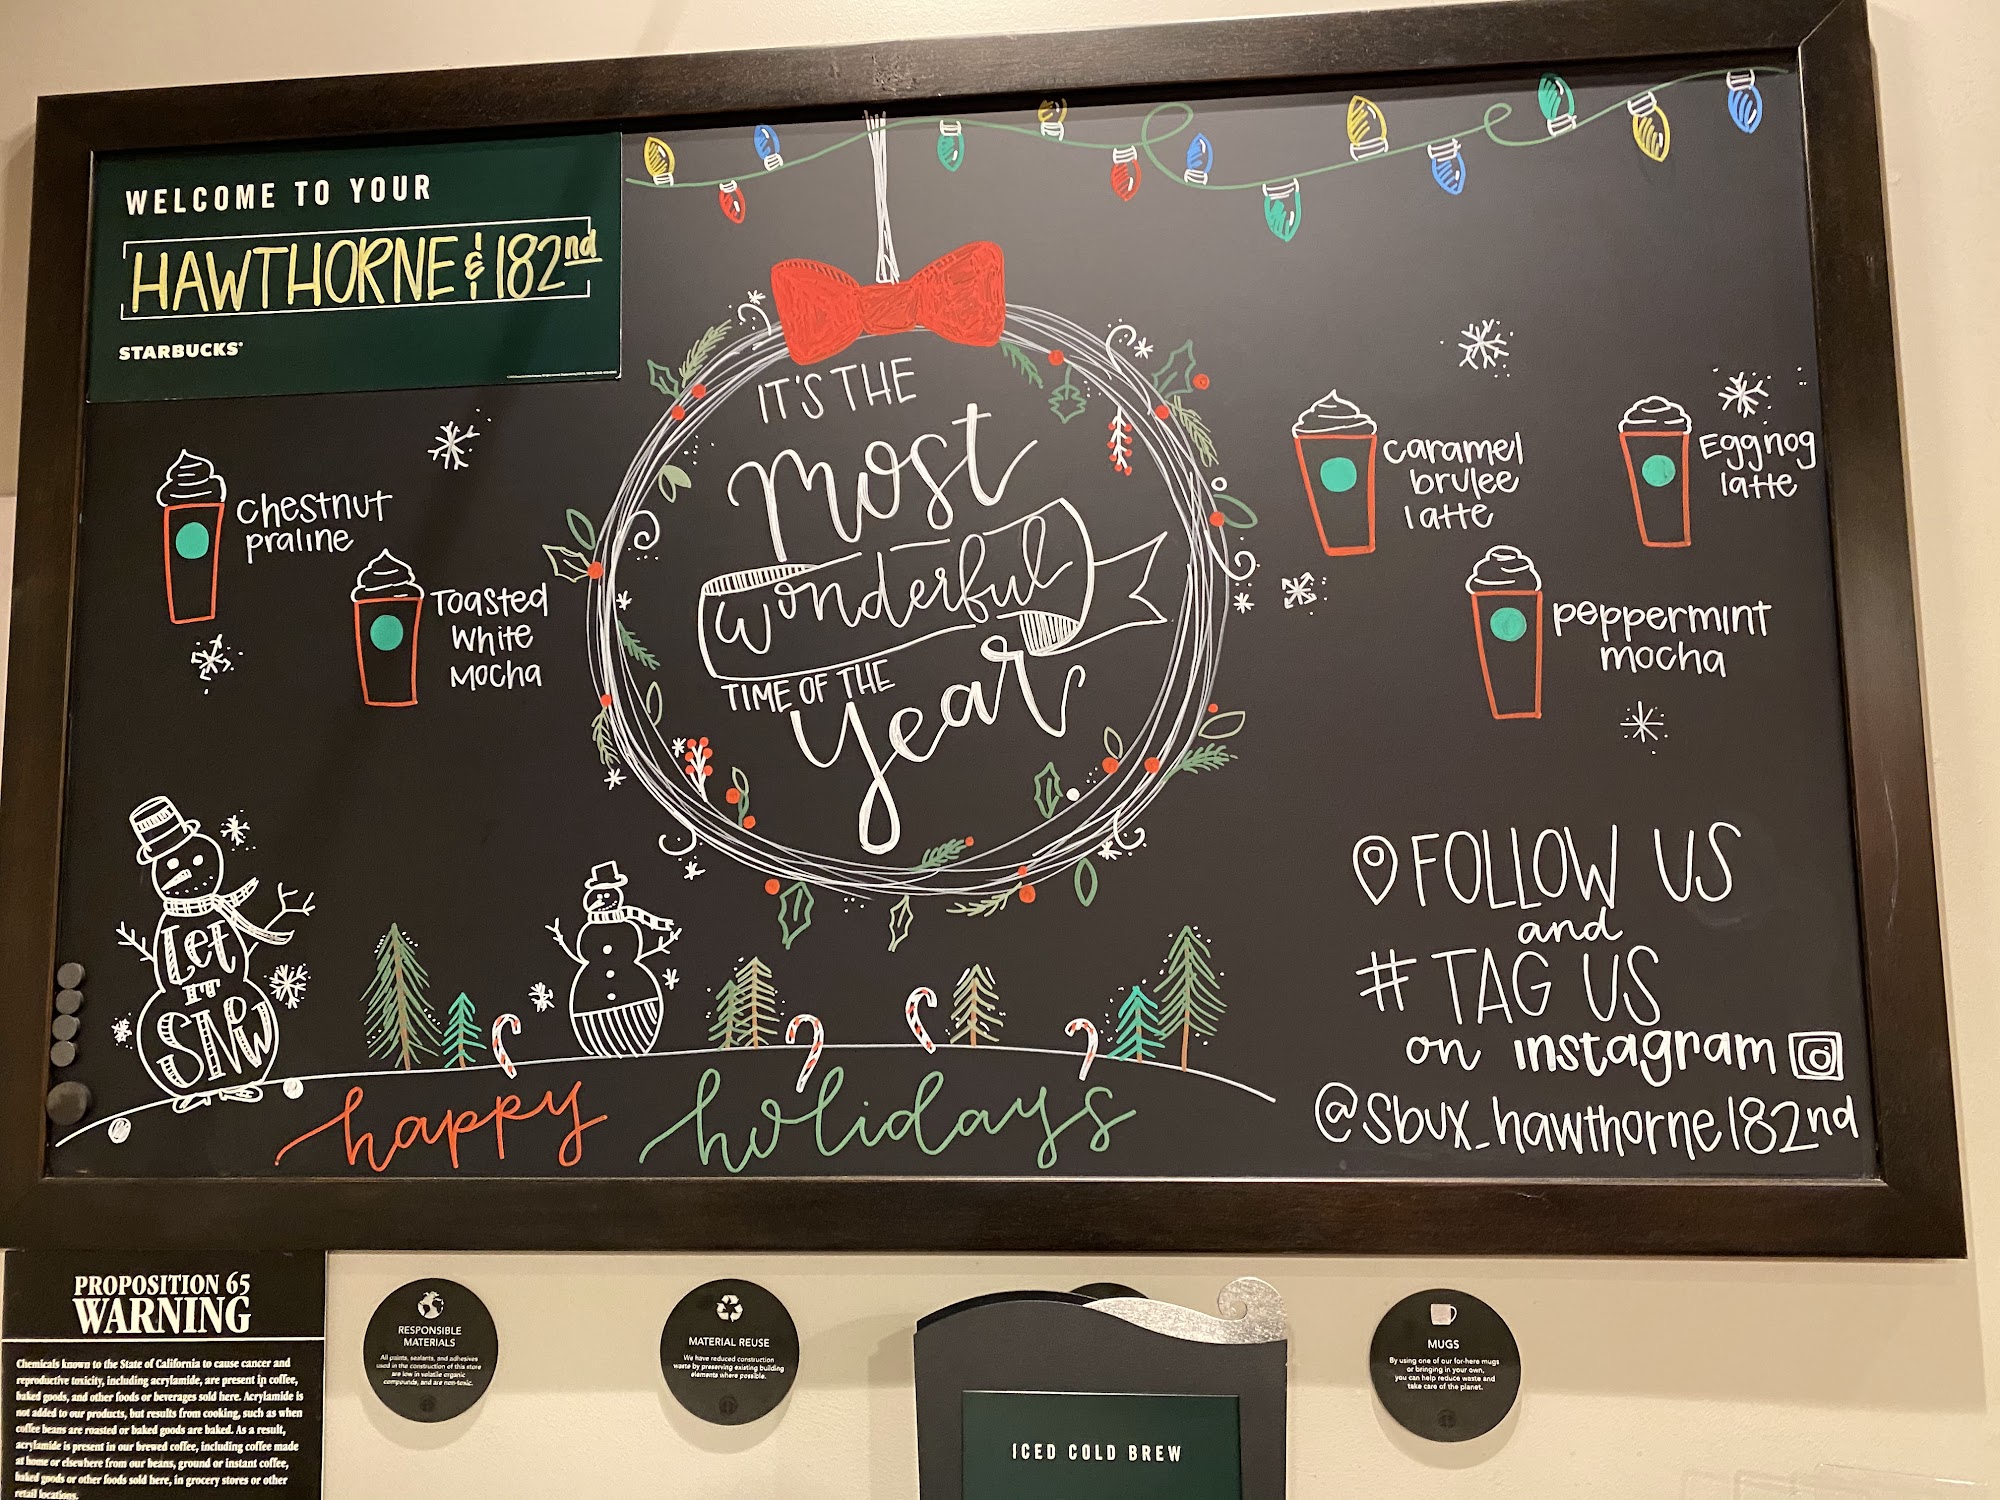 WELCOME TO YOUR
HAWTHORNE & 182nd
STARBUCKS®
IT'S THE
most
wonderful
TIME OF THE
year
chestnut
praline
Toasted
white
mocha
caramel
brulee
latte
Eggnog
latte
peppermint
mocha
Let
IT
SNOW
happy holidays
FOLLOW US
and
# TAG US
on instagram
@Sbux_hawthorne182nd
PROPOSITION 65
WARNING
Chemicals known to the State of California to cause cancer and
reproductive toxicity, including acrylamide, are present in coffee,
baked goods, and other foods or beverages sold here. Acrylamide is
not added to our products, but results from cooking, such as when
coffee beans are roasted or baked goods are baked. As a result,
acrylamide is present in our brewed coffee, including coffee made
at home or elsewhere from our beans, ground or instant coffee,
baked goods or other foods sold here, in grocery stores or other
retail locations.
RESPONSIBLE
MATERIALS
All paints, sealants, and adhesives
used in the construction of this store
are low in volatile organic
compounds, and are non-toxic.
MATERIAL REUSE
We have reduced construction
waste by preserving existing building
elements where possible.
ICED COLD BREW
MUGS
By using one of our for-here mugs
or bringing in your own,
you can help reduce waste and
take care of the planet.